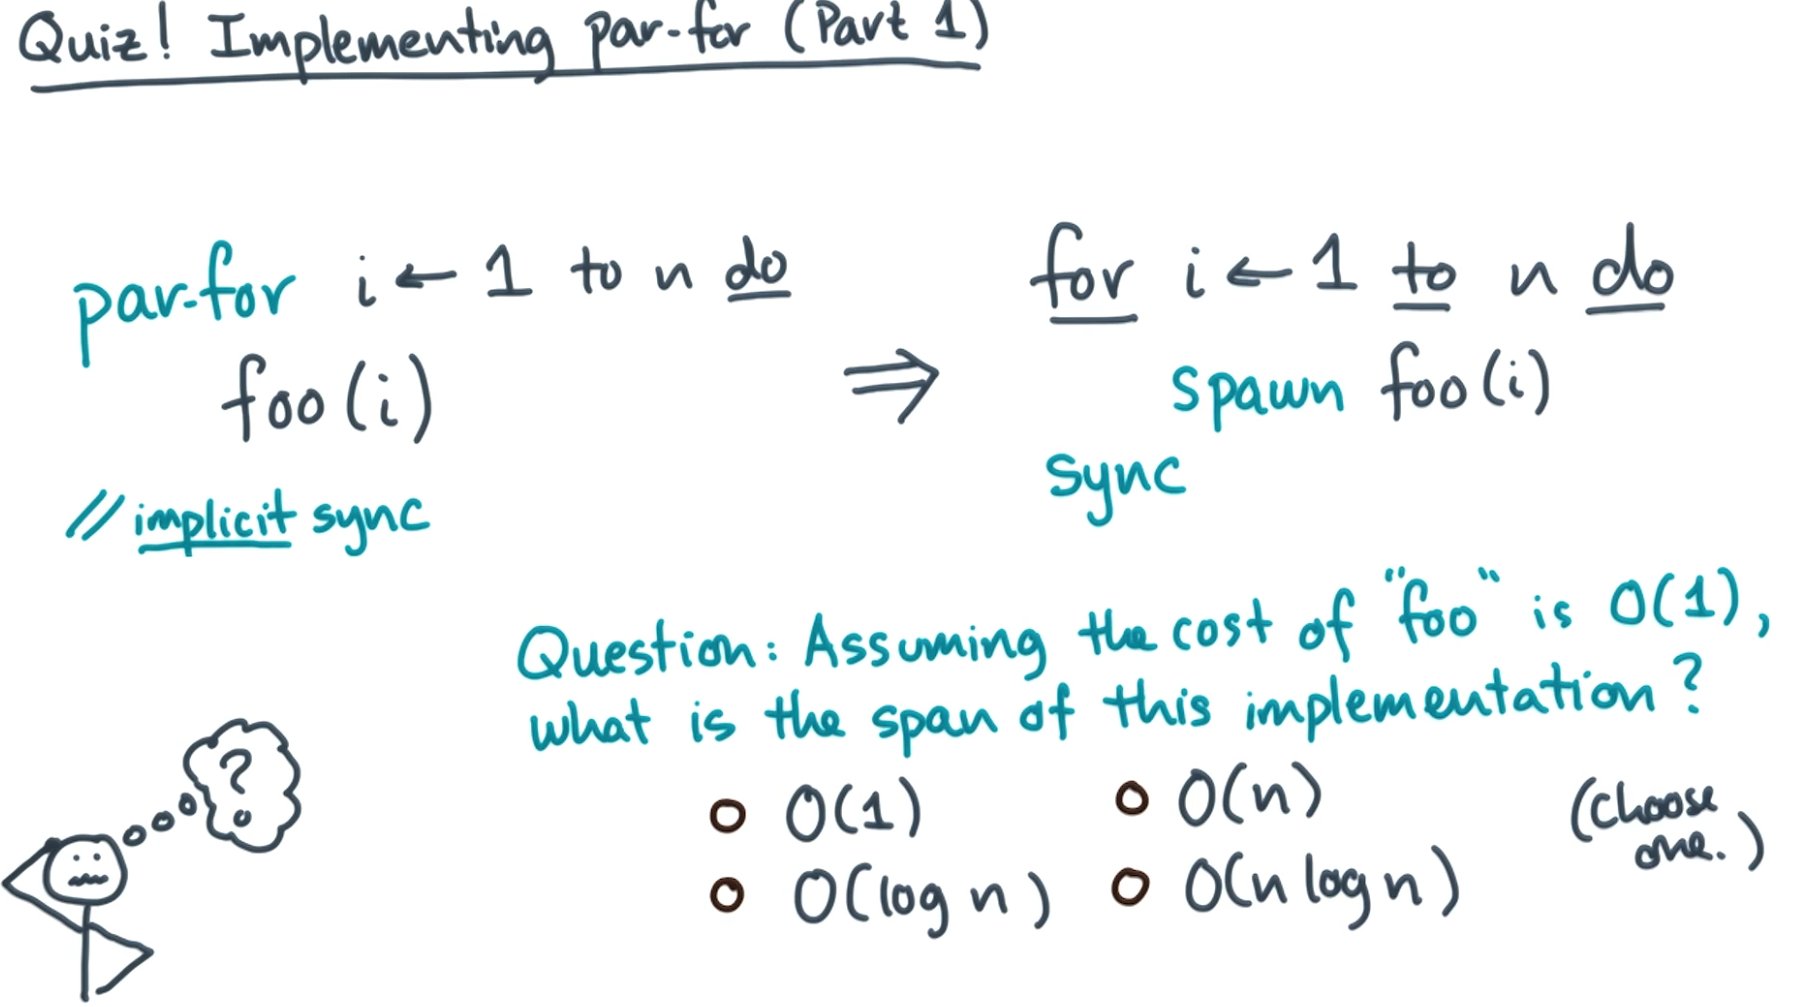 Quiz! Implementing par-for (Part 1)
par-for i ← 1 to n do
foo(i)
// implicit sync
⇒
for i ← 1 to n do
spawn foo(i)
sync
Question: Assuming the cost of "foo" is O(1),
what is the span of this implementation?
O(1)
O(n)
O(log n)
O(n log n)
(Choose
one.)
?